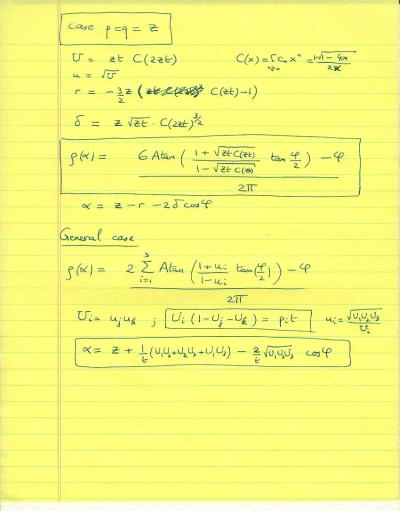 case p=q=z
U = zt C(2zt)    C(x) = Σ cₙ xⁿ = (1-√(1-4x))/(2x)
n≥0
u = √U
r = -3/2 z ( C(zt)-1)
δ = z √(zt) · C(2zt)^(3/2)
ρ(α) = (6 Atan ( (1+√(zt C(zt)))/(1-√(zt C(zt))) tan φ/2 ) - φ)/(2π)
α = z - r - 2δ cos φ
General case
ρ(α) = (2 Σ_{i=1}^{3} Atan ( (1+uᵢ)/(1-uᵢ) tan(φ/2) ) - φ)/(2π)
Uᵢ = uⱼ uₖ ; Uᵢ (1-Uⱼ-Uₖ) = pᵢt    uᵢ = √(U₁U₂U₃)/Uᵢ
α = z + 1/t (U₁U₂+U₂U₃+U₁U₃) - 2/t √(U₁U₂U₃) cos φ